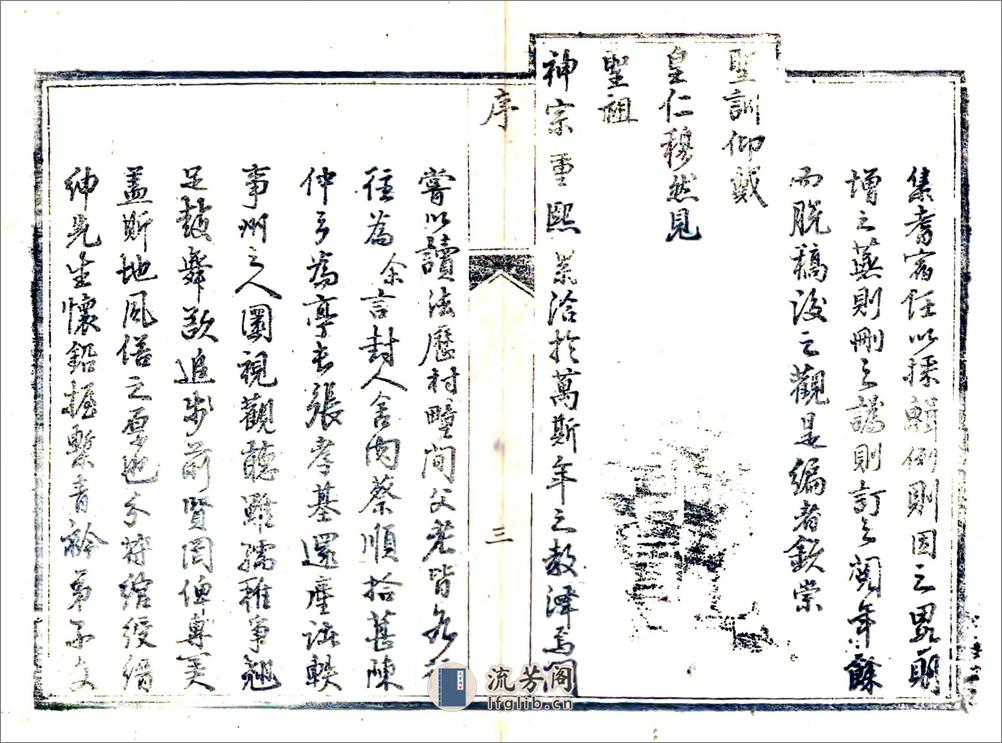 集耆宿任以採輯例則因之畧則
增之蕪則刪之譌則訂之閱年餘
而脫稿後之觀是編者欽崇
聖訓仰戴
皇仁穆然見
聖祖
神宗重熙累洽於萬斯年之教澤焉
序
三
嘗以讀法歷村疃間父老皆
往為余言封人舍肉蔡順拾葚陳
仲弓為亭長張孝基還產諸軼
事州之人園視觀聽雖孺稚事翹
足鼓舞欲追步前賢罔俾專美
蓋斯地風俗之厚也予符綰綬縉
紳先生懷鉛握槧青衿弟子文
流芳阁
lfglib.cn